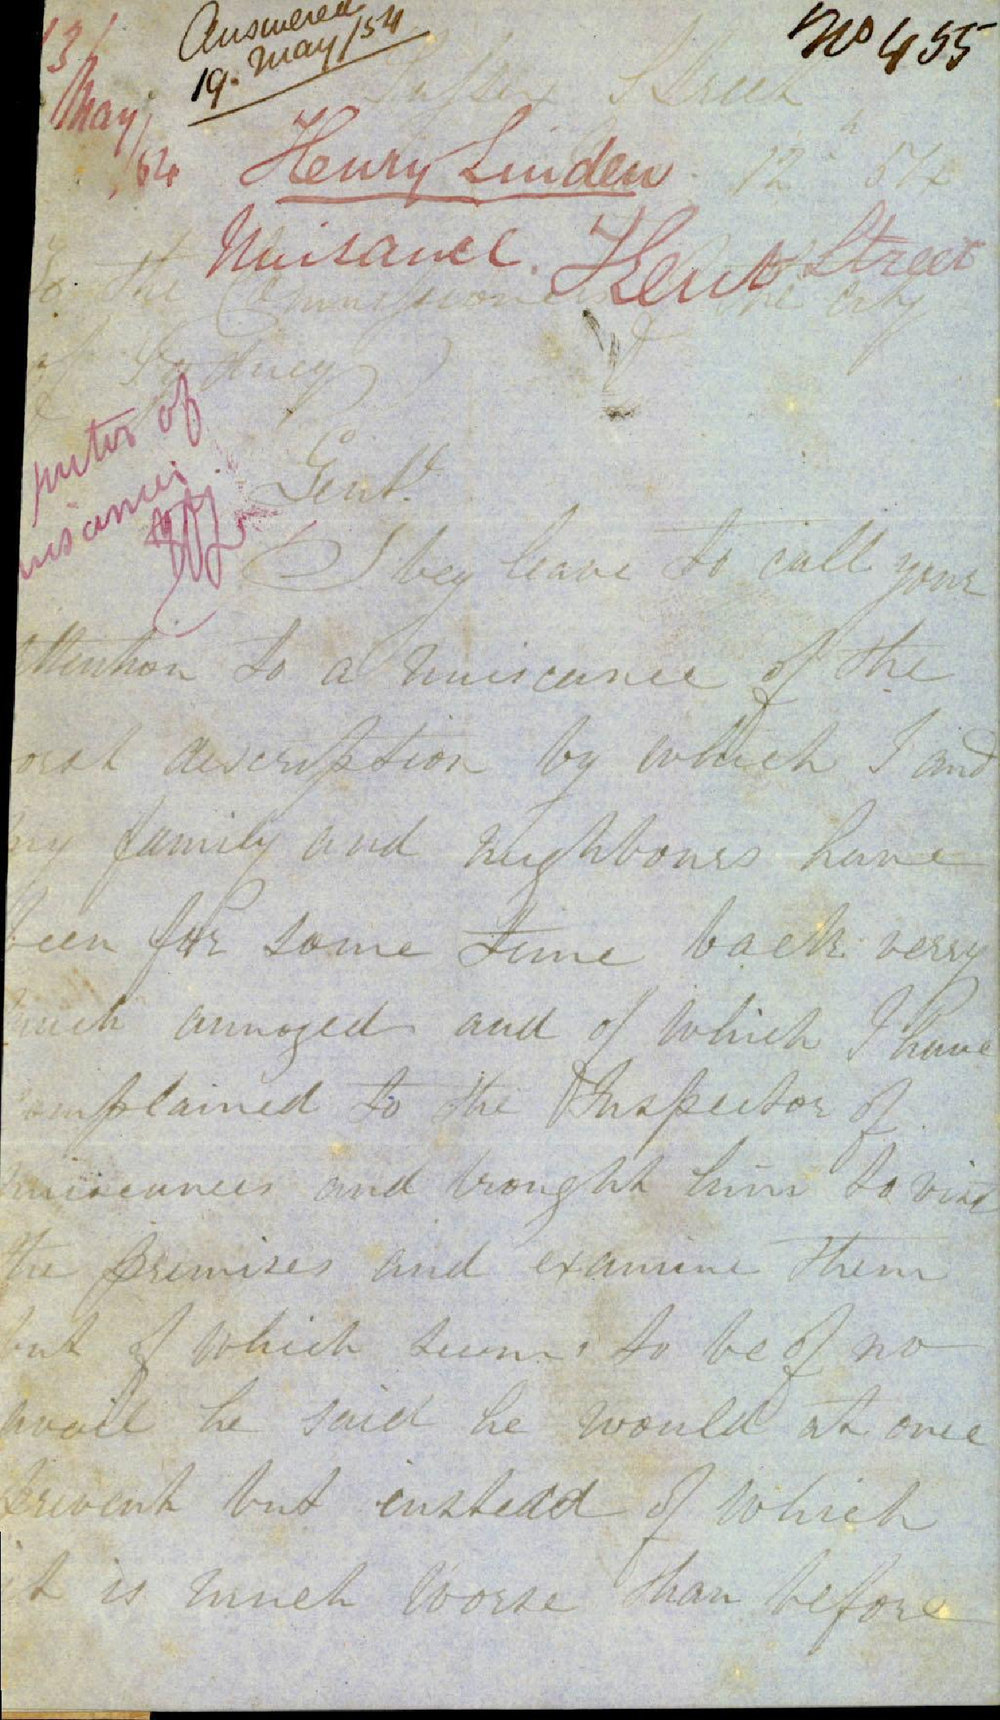 13/
May/
/54
Answered
19. May/54
No 455
Sussex Street
12th 54
Henry Linden
Nuisance. Kent Street
To the Commissioners the City
of Sydney
pector of
uisances
Gent.
I beg leave to call your
ttention to a nuiscance of the
orst description by which I and
my family and neighbours have
been for some time back verry
much annoyed and of which I have
complained to the Inspector of
nuiscances and brought him to
the premises and examine them
but of which seems to be of no
avail he said he would at once
prevent but instead of which
it is much worse than before